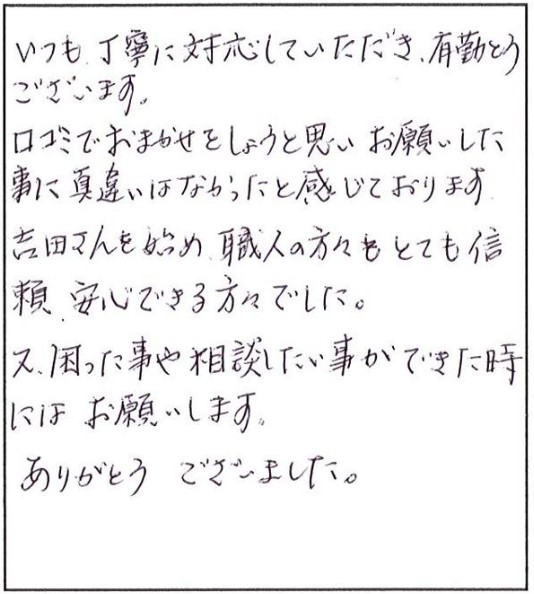 いつも、丁寧に対応していただき、有勤とう
ございます。
口コミでおまかせをしようと思い お願いした
事に真違いはなかったと感じております
吉田さんを始め 職人の方々もとても信
頼、安心できる方々でした。
又、困った事や相談したい事ができた時
にはお願いします。
ありがとう ございました。